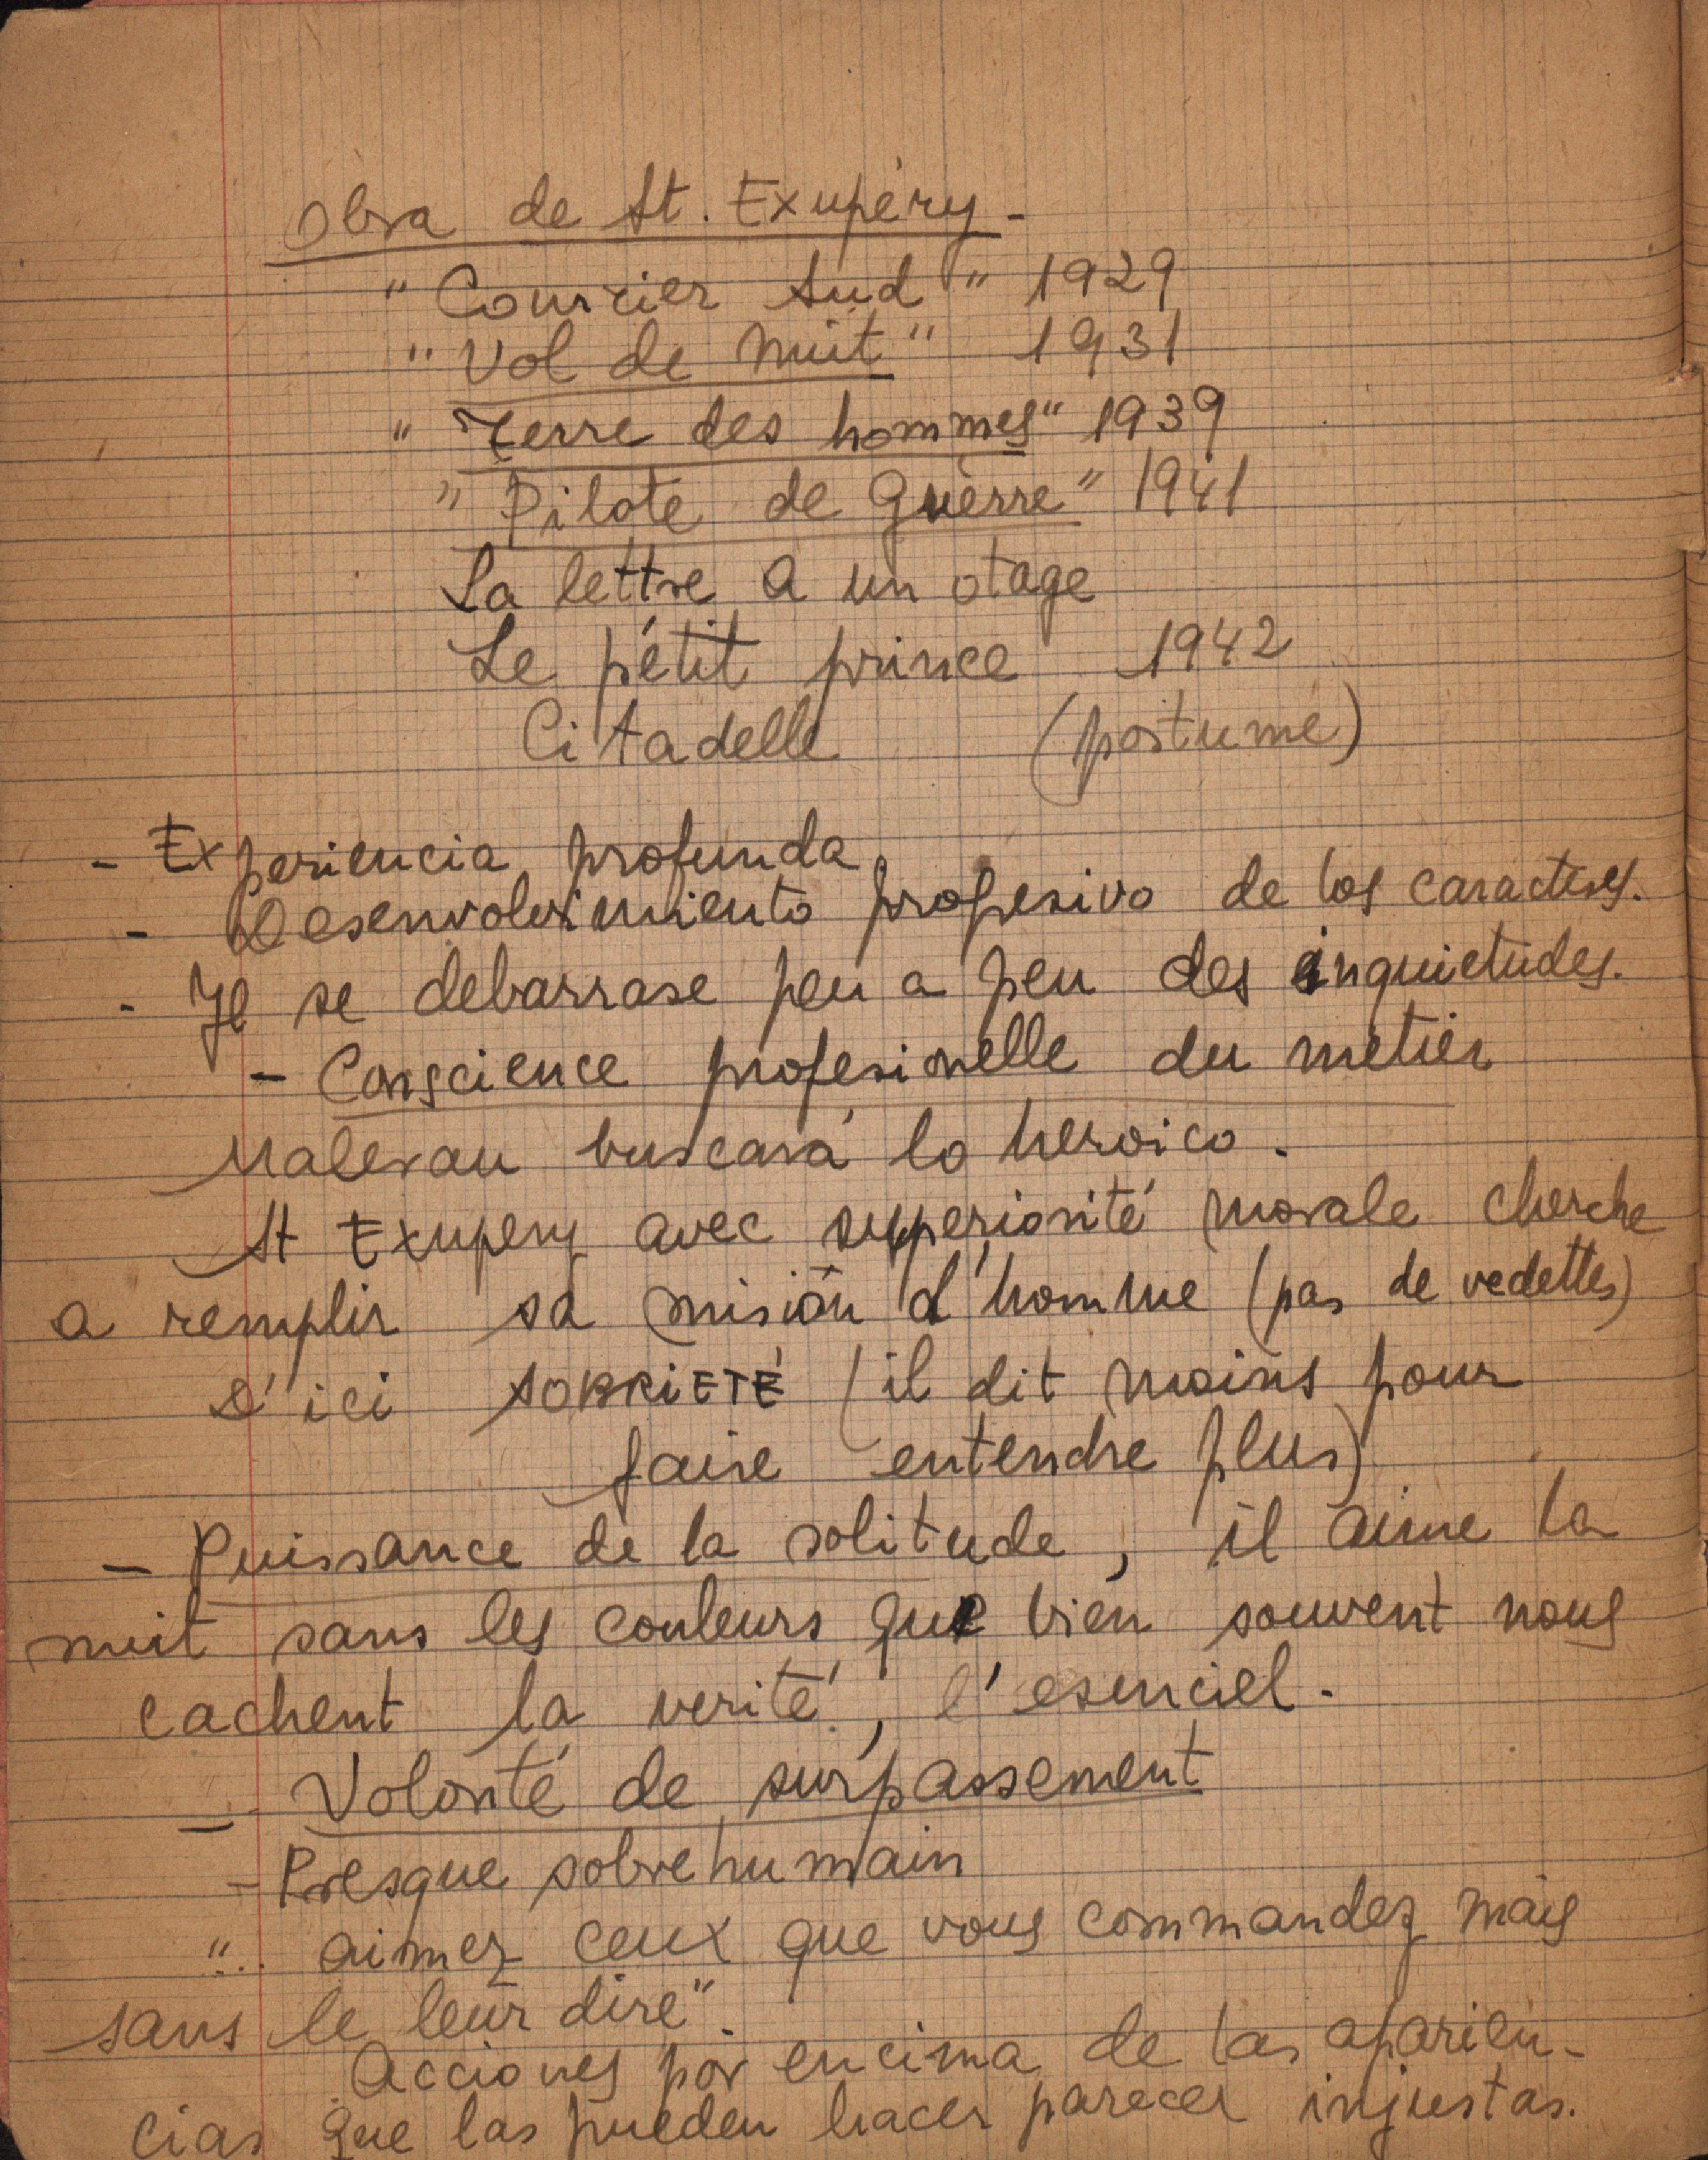 Obra de St. Exupéry -
"Courrier Sud" 1929
"Vol de Nuit" 1931
"Terre des hommes" 1939
"Pilote de Guèrre" 1941
La lettre a un otage
Le pétit prince 1942
Citadelle (postume)
- Experiencia profunda
- Desenvolvimiento progresivo de los caracteres.
- Il se debarrase peu a peu des inquietudes.
- Conscience profesionelle du métier
Malerau buscará lo heroico.
St Exupery avec supperiorité morale cherche
a remplir sa misión d'homme (pas de vedettes)
D'ici SOBRIETÉ (il dit moins pour
faire entendre plus)
- Puissance de la solitude, il aime la
nuit sans les couleurs que bien souvent nous
cachent la verité, l'esenciel.
- Volonté de surpassement
- Presque sobrehumain
".. aimez ceux que vous commandez mais
sans le leur dire".
Acciones por encima de las aparien-
cias que las pueden hacer parecer injustas.